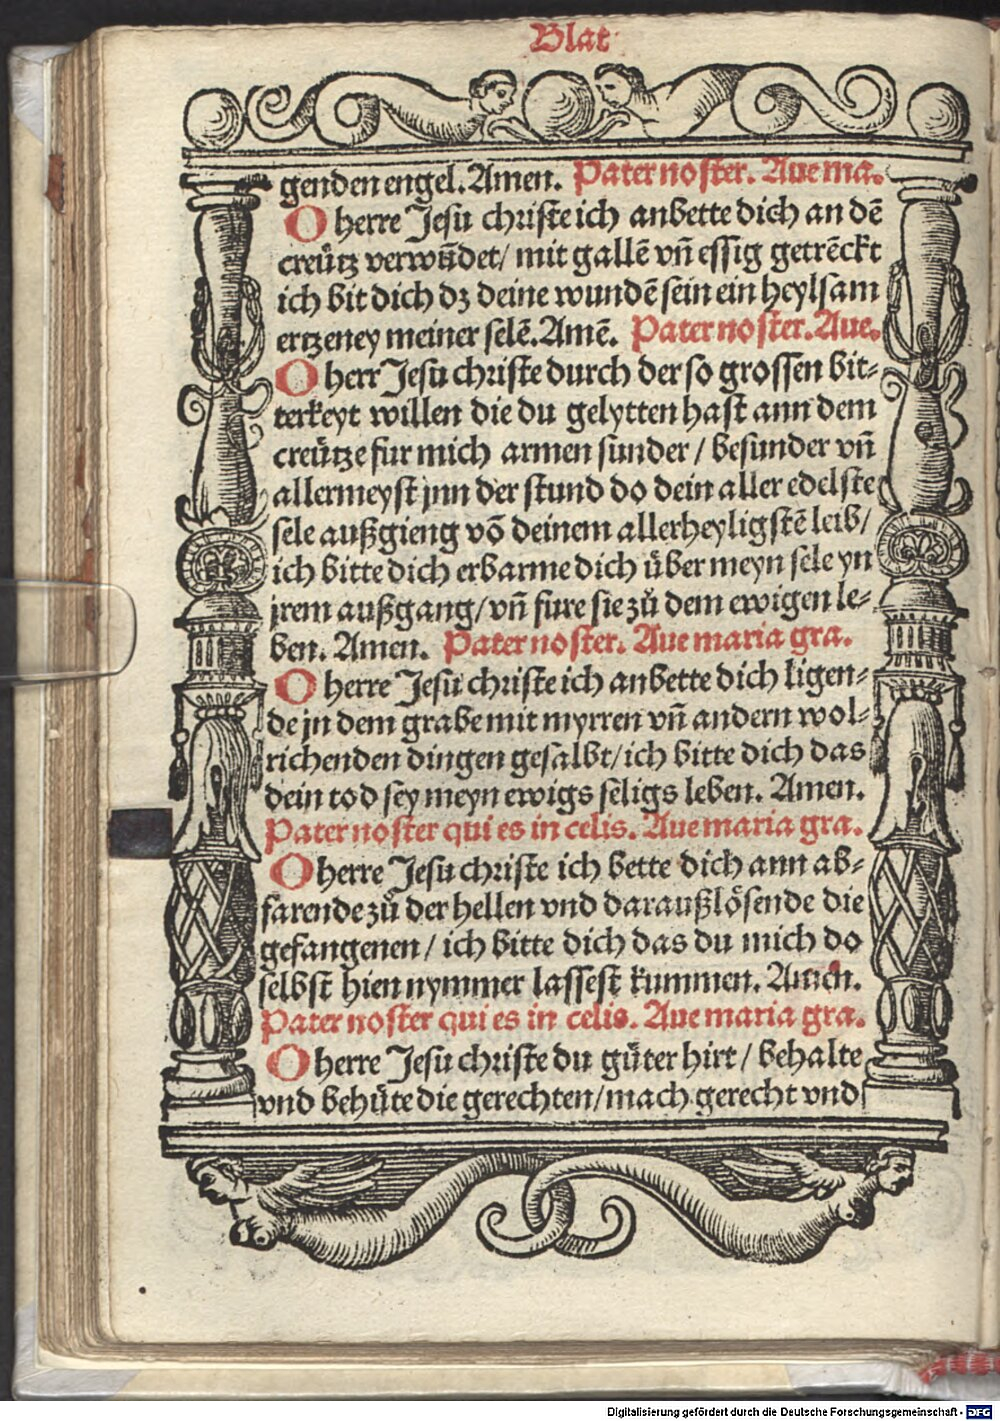 Blat
genden engel. Amen. Pater noster. Aue ma.
O herre Jesu christe ich anbette dich an dē
creütz verwūdet/ mit gallē vn̄ essig getrēckt
ich bit dich dz deine wundē sein ein heylsam
ertzeney meiner selē. Amē. Pater noster. Aue.
O herr Jesu christe durch der so grossen bit⸗
terkeyt willen die du gelytten hast ann dem
creütze fur mich armen sunder / besunder vn̄
allermeyst jnn der stund do dein aller edelste
sele außgieng vō deinem allerheyligstē leib/
ich bitte dich erbarme dich über meyn sele yn
jrem außgang/ vn̄ fure sie zů dem ewigen le⸗
ben. Amen. Pater noster. Aue maria gra.
O herre Jesu christe ich anbette dich ligen⸗
de jn dem grabe mit myrren vn̄ andern wol⸗
richenden dingen gesalbt/ ich bitte dich das
dein tod sey meyn ewigs seligs leben. Amen.
Pater noster qui es in celis. Aue maria gra.
O herre Jesu christe ich bette dich ann ab⸗
farende zů der hellen vnd daraußlösende die
gefangenen / ich bitte dich das du mich do
selbst hien nymmer lassest kummen. Amen.
Pater noster qui es in celis. Aue maria gra.
O herre Jesu christe du güter hirt / behalte
vnd behüte die gerechten/ mach gerecht vnd
Digitalisierung gefördert durch die Deutsche Forschungsgemeinschaft - DFG